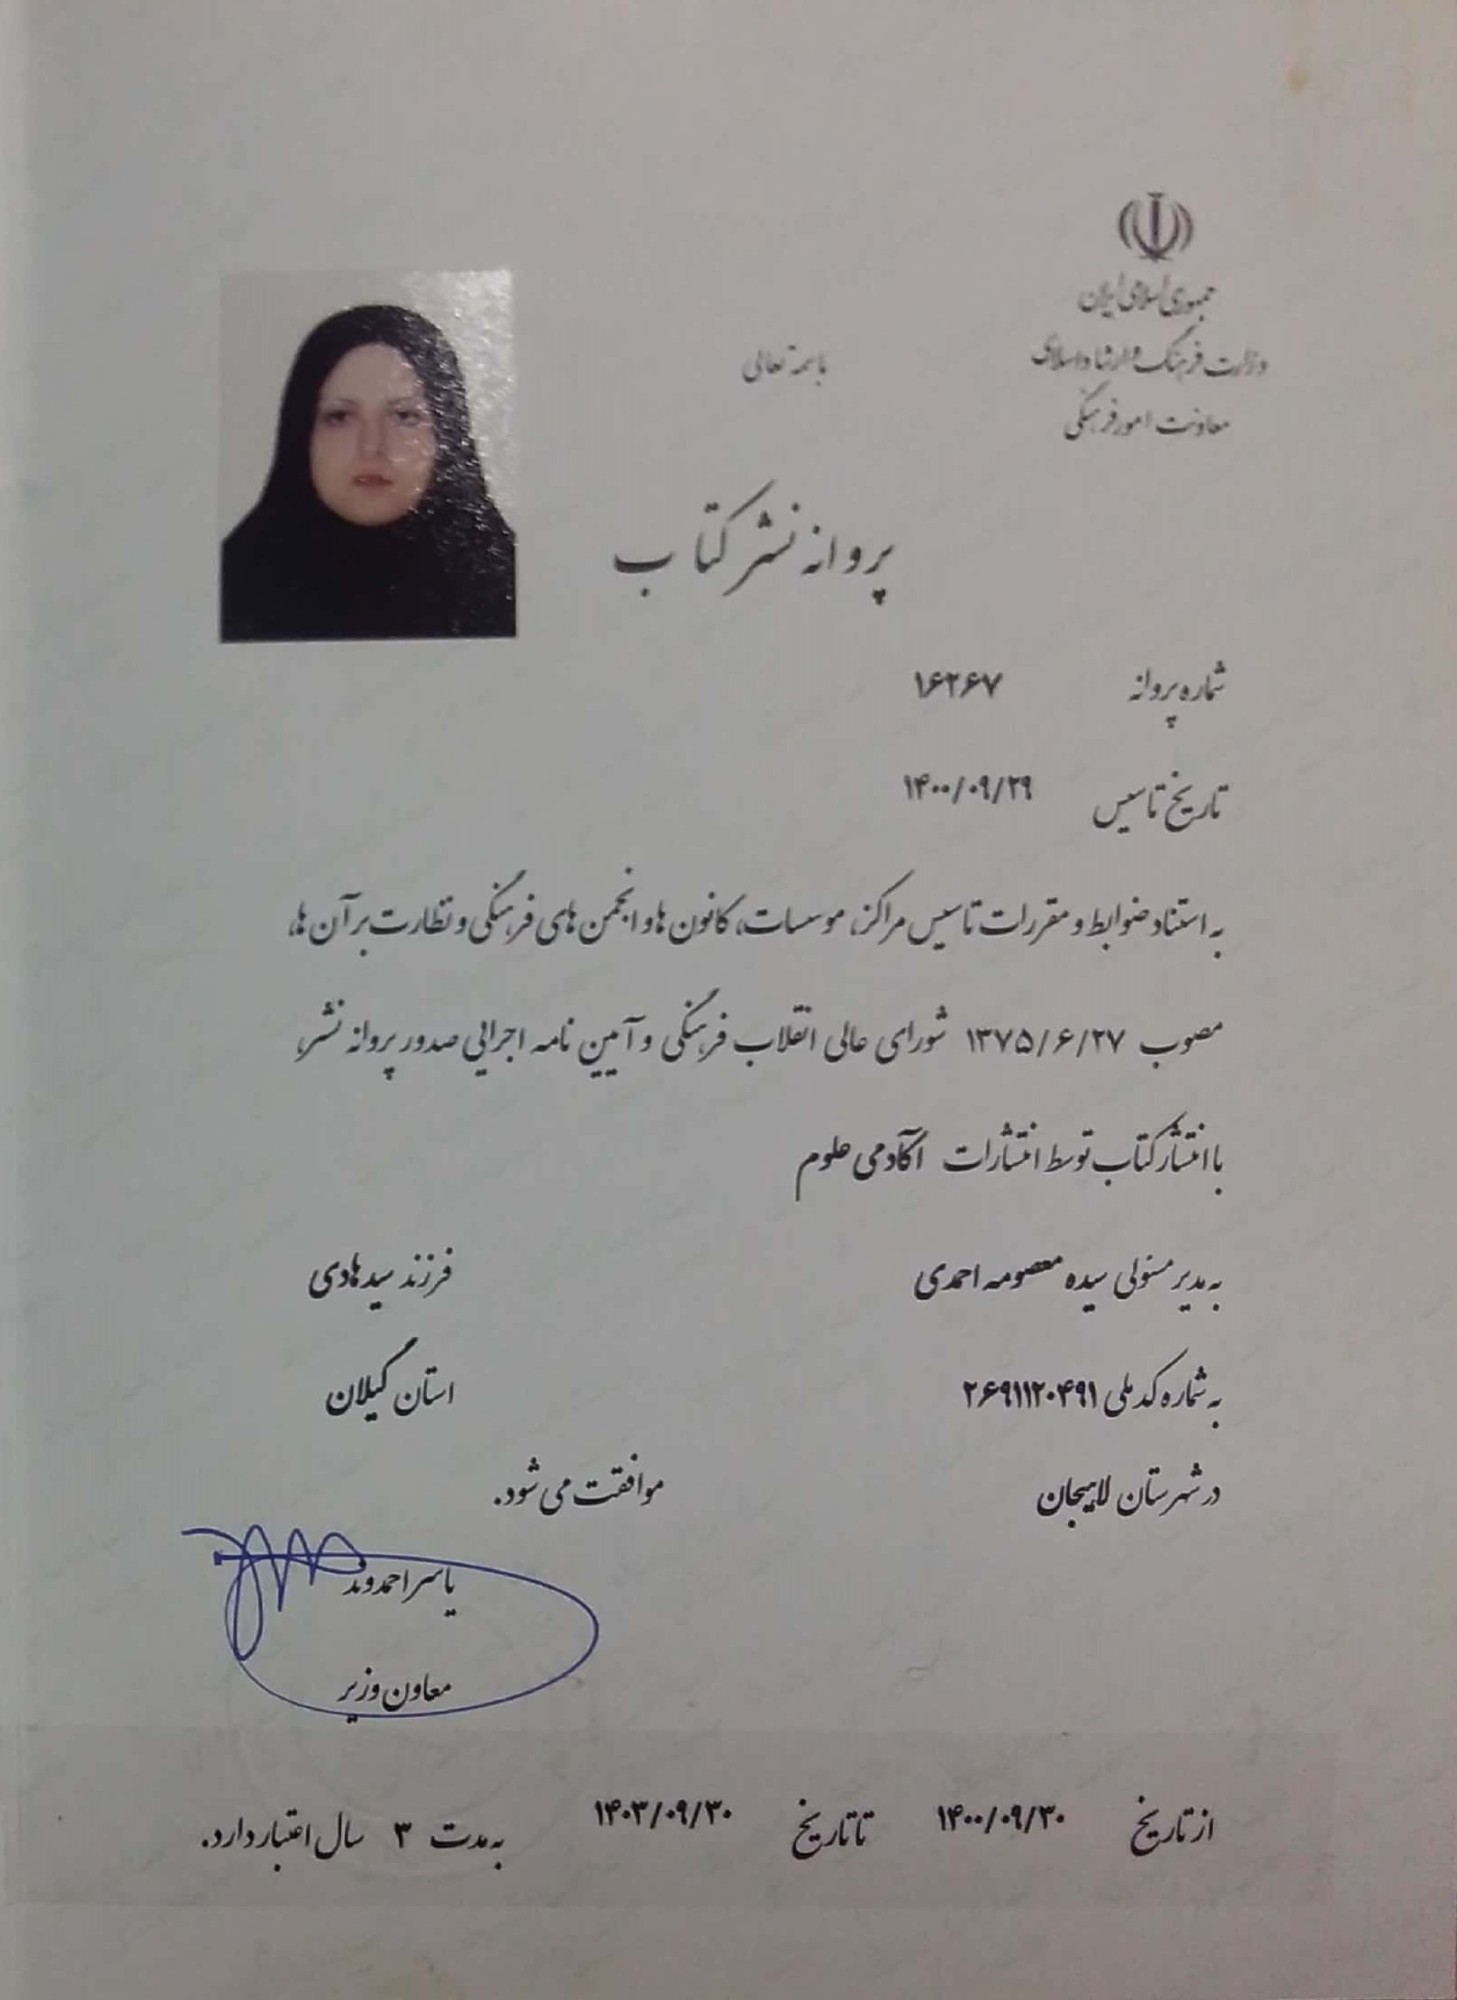 جمهوری اسلامی ایران
وزارت فرهنگ و ارشاد اسلامی
معاونت امور فرهنگی
باسمه تعالی
پروانه نشر کتاب
شماره پروانه ۱۶۲۶۷
تاریخ تاسیس ۱۴۰۰/۰۹/۲۹
به استناد ضوابط و مقررات تاسیس مراکز، موسسات، کانون ها و انجمن های فرهنگی و نظارت بر آن ها،
مصوب ۱۳۷۵/۶/۲۷ شورای عالی انقلاب فرهنگی و آیین نامه اجرایی صدور پروانه نشر،
با انتشار کتاب توسط انتشارات آکادمی علوم
به مدیر مسئولی سیده معصومه احمدی فرزند سید هادی
به شماره کد ملی ۲۶۹۱۱۲۰۴۹۱ استان گیلان
در شهرستان لاهیجان موافقت می شود.
یاسر احمدوند
معاون وزیر
از تاریخ ۱۴۰۰/۰۹/۳۰ تا تاریخ ۱۴۰۳/۰۹/۳۰ به مدت ۳ سال اعتبار دارد.